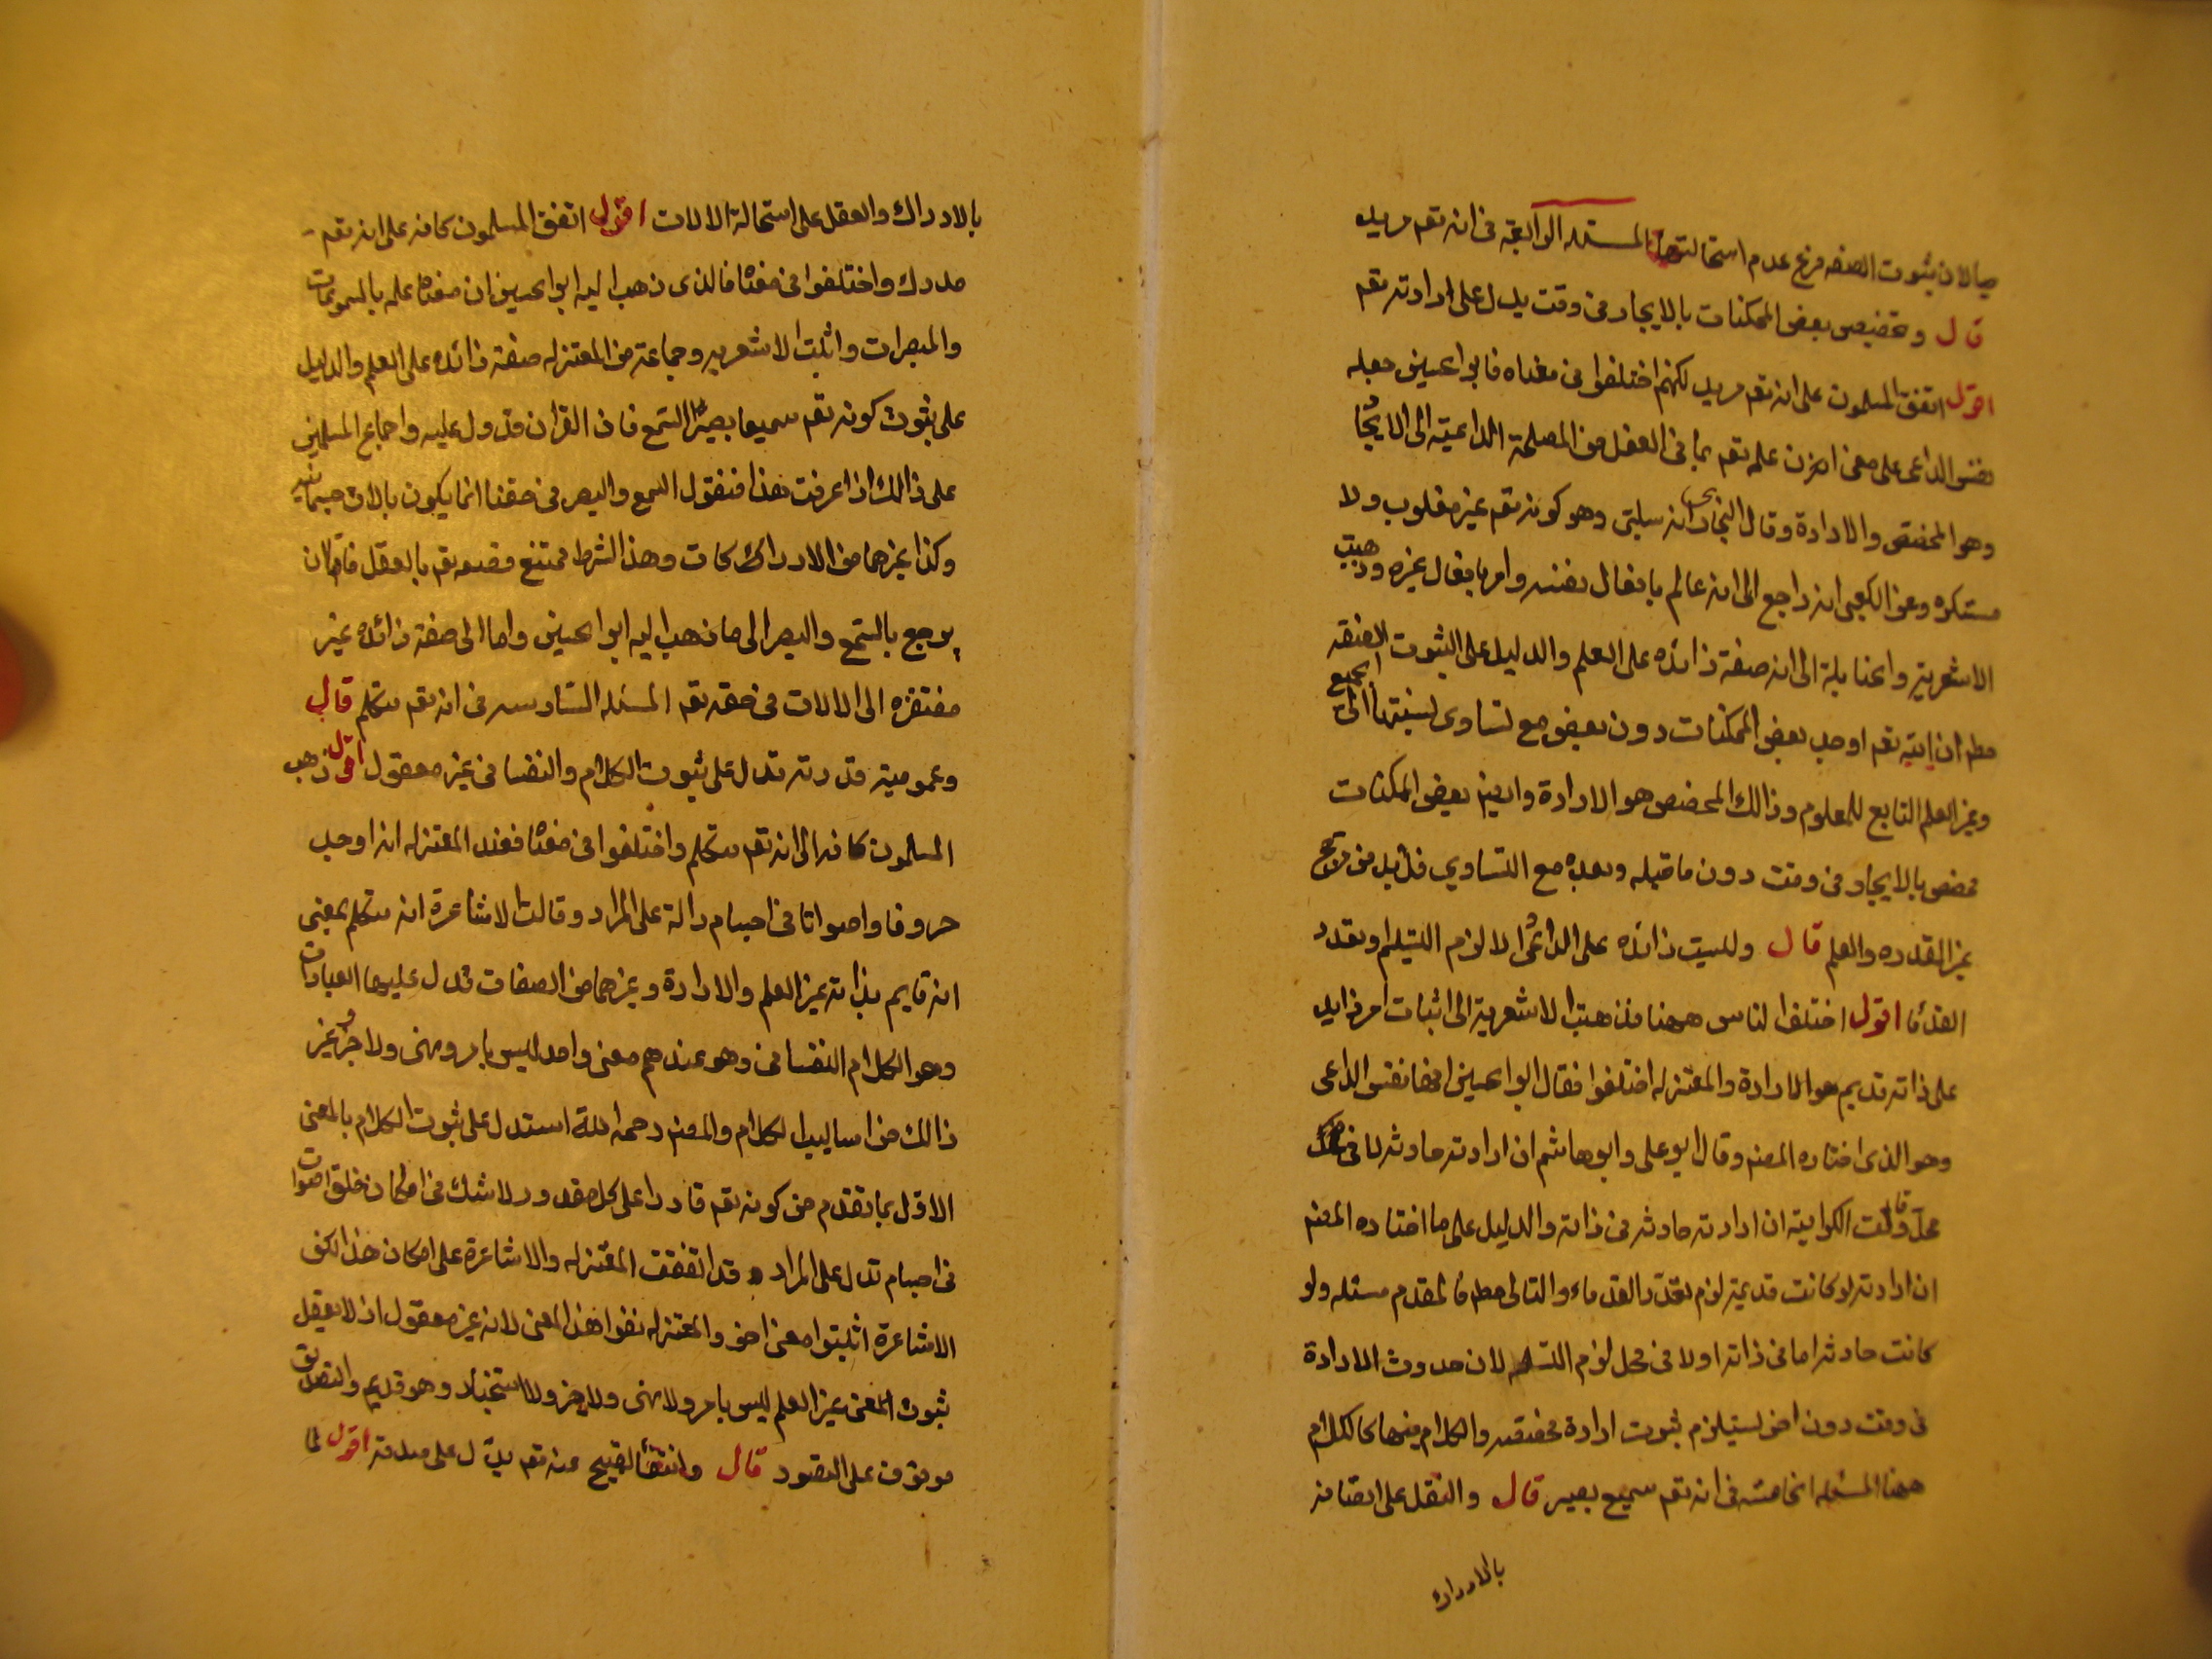 حيا لان ثبوت الصفه فرع عدم استحالتها المسئله الرابعة فى انه تعم مريد
قال وتخصيص بعض الممكنات بالايجاد فى وقت يدل على ارادته تعم
اقول اتفق المسلمون على انه تعم مريد لكنهم اختلفوا فى معناه فابو الحسين جعله
نفس الداعى على معنى ان علمه تعم بما فى الفعل من المصلحة الداعية الى الايجاد
وهو المخصص والارادة وقال النجار انه سلبى وهو كونه تعم غير مغلوب ولا
مستكره وعن الكعبى انه راجع الى انه عالم بافعال نفسه وامر بافعال غيره وذهبت
الاشعرية والحنابلة الى انه صفة زائده على العلم والدليل على الثبوت الصفة
مطم ان الله تعم اوجد بعض الممكنات دون بعض مع تساوى نسبتها الى الجميع
وغير العلم التابع للمعلوم وذالك المخصص هو الارادة وايضم بعض الممكنات
مخصص بالايجاد فى وقت دون ما قبله وبعده مع التساوي فلابد من مرجح
غير القدره والعلم قال وليست زائده على الداعى والا لزم التسلسل او تعدد
القدما اقول اختلف الناس ههنا فذهبت الاشعرية الى اثبات امر زايد
على ذاته قديم هو الارادة والمعتزله اختلفوا فقال ابو الحسين انها نفس الداعى
وهو الذى اختاره المصنم وقال ابو على وابو هاشم ان ارادته حادثه لا فى
محل وقالت الكرامية ان ارادته حادثه فى ذاته والدليل على ما اختاره المصنم
ان ارادته لو كانت قديمة لزم تعدد القدماء والتالى مطم فالمقدم مسئله ولو
كانت حادثه اما فى ذاته او لا فى محل لزم التسلسل لان حدوث الارادة
فى وقت دون اخر يستلزم ثبوت ارادة مخصصه والكلام فيها كالكلام
ههنا المسئله الخامسة فى انه تعم سميع بصير قال والنقل على اتصافه
بالادراك
بالادراك والعقل على استحالة الالات اقول اتفق المسلمون كافه على انه تعم
مدرك واختلفوا فى معناه فالذى ذهب اليه ابو الحسين ان معناه علمه بالمسموعات
والمبصرات واثبت الاشعريه وجماعة من المعتزله صفة زائده على العلم والدليل
على ثبوت كونه تعم سميعا بصيرا السمع فان القران قد دل عليه واجماع المسلمين
على ذالك اذا عرفت هذا فنقول السمع والبصر فى حقنا انما يكون بالات جسمانيه
وكذا غيرها من الادراكات وهذا الشرط ممتنع فى حقه تعم بالعقل فاما ان
يرجع بالسمع والبصر الى ما ذهب اليه ابو الحسين واما الى صفة زائده غير
مفتقره الى الالات فى حقه تعم المسئله السادسه فى انه تعم متكلم قال
وعمومية قدرته تدل على ثبوت الكلام والنفسانى غير معقول اقول ذهب
المسلمون كافه الى انه تعم متكلم واختلفوا فى معناه فعند المعتزله انه اوجد
حروفا واصواتا فى اجسام دالة على المراد وقالت الاشاعرة انه متكلم بمعنى
انه قايم بذاته غير العلم والارادة وغيرهما من الصفات تدل عليها العبارات
وهو الكلام النفسانى وهو عندهم معنى واحد ليس بامر ونهى ولا خبر وغير
ذالك من اساليب الكلام والمصنم رحمه الله استدل على ثبوت الكلام بالمعنى
الاول بما تقدم من كونه تعم قادرا على كل مقدور ولا شك فى امكان خلق اصوات
فى اجسام تدل على المراد وقد اتفقت المعتزله والاشاعرة على امكان هذا لكن
الاشاعرة اثبتوا معنى اخر والمعتزله نفوا هذا المعنى لانه غير معقول اذ لا يعقل
ثبوت المعنى غير العلم ليس بامر ولا نهى ولا خبر ولا استخبار وهو قديم والتصديق
موقوف على التصور قال وانتفاء القبيح عنه تعم يدل على صدقه اقول لما